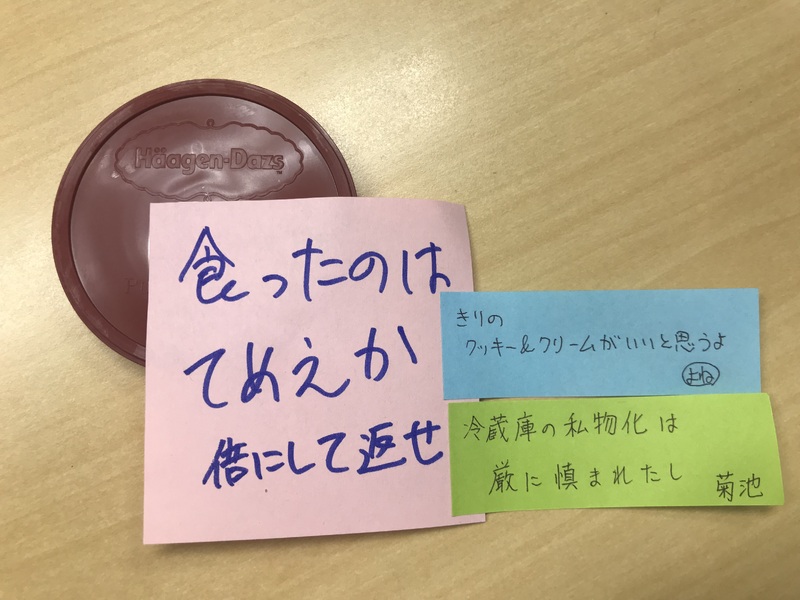 Häagen-Dazs
食ったのは
てめえか
倍にして返せ
きりの
クッキー&クリームがいいと思うよ
よね
冷蔵庫の私物化は
厳に慎まれたし
菊池